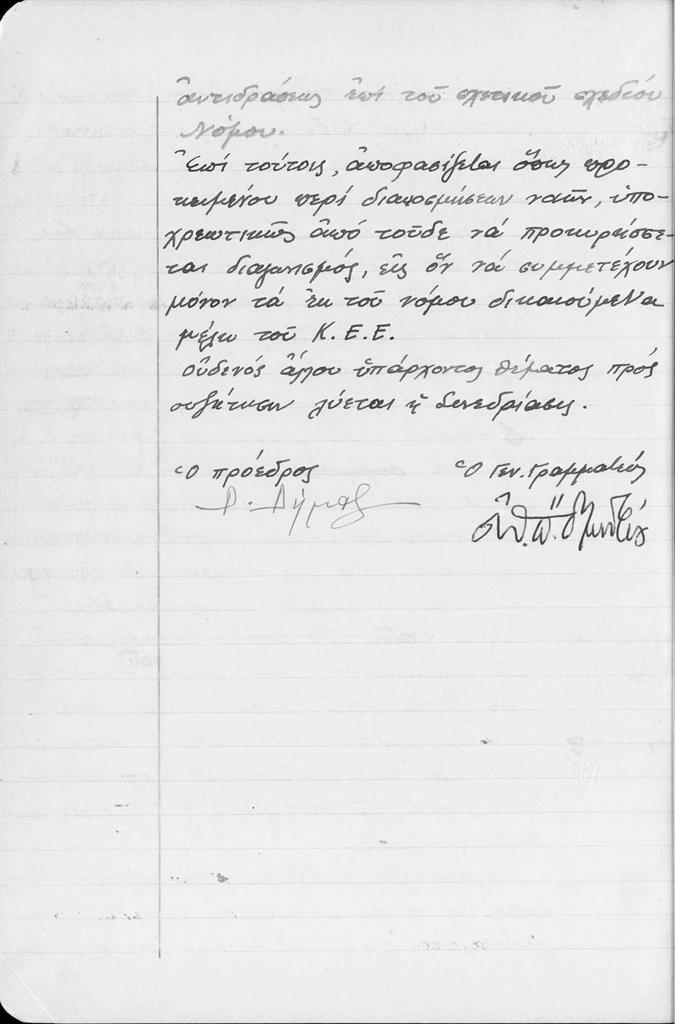 ἀντιδράσεως ἐπί τοῦ σχετικοῦ σχεδίου
Νόμου.
Ἐπί τούτοις, ἀποφασίζεται ὅπως προ-
κειμένου περί διακοσμήσεων ναῶν, ὑπο-
χρεωτικῶς ἀπό τοῦδε νά προκηρύσσε-
ται διαγωνισμός, εἰς ὅν νά συμμετέχουν
μόνον τά ἐκ τοῦ νόμου δικαιούμενα
μέλη τοῦ Κ.Ε.Ε.
Οὐδενός ἄλλου ὑπάρχοντος θέματος πρός
συζήτησιν λύεται ἡ Συνεδρίασις.
Ὁ πρόεδρος Ὁ Γεν. Γραμματεύς